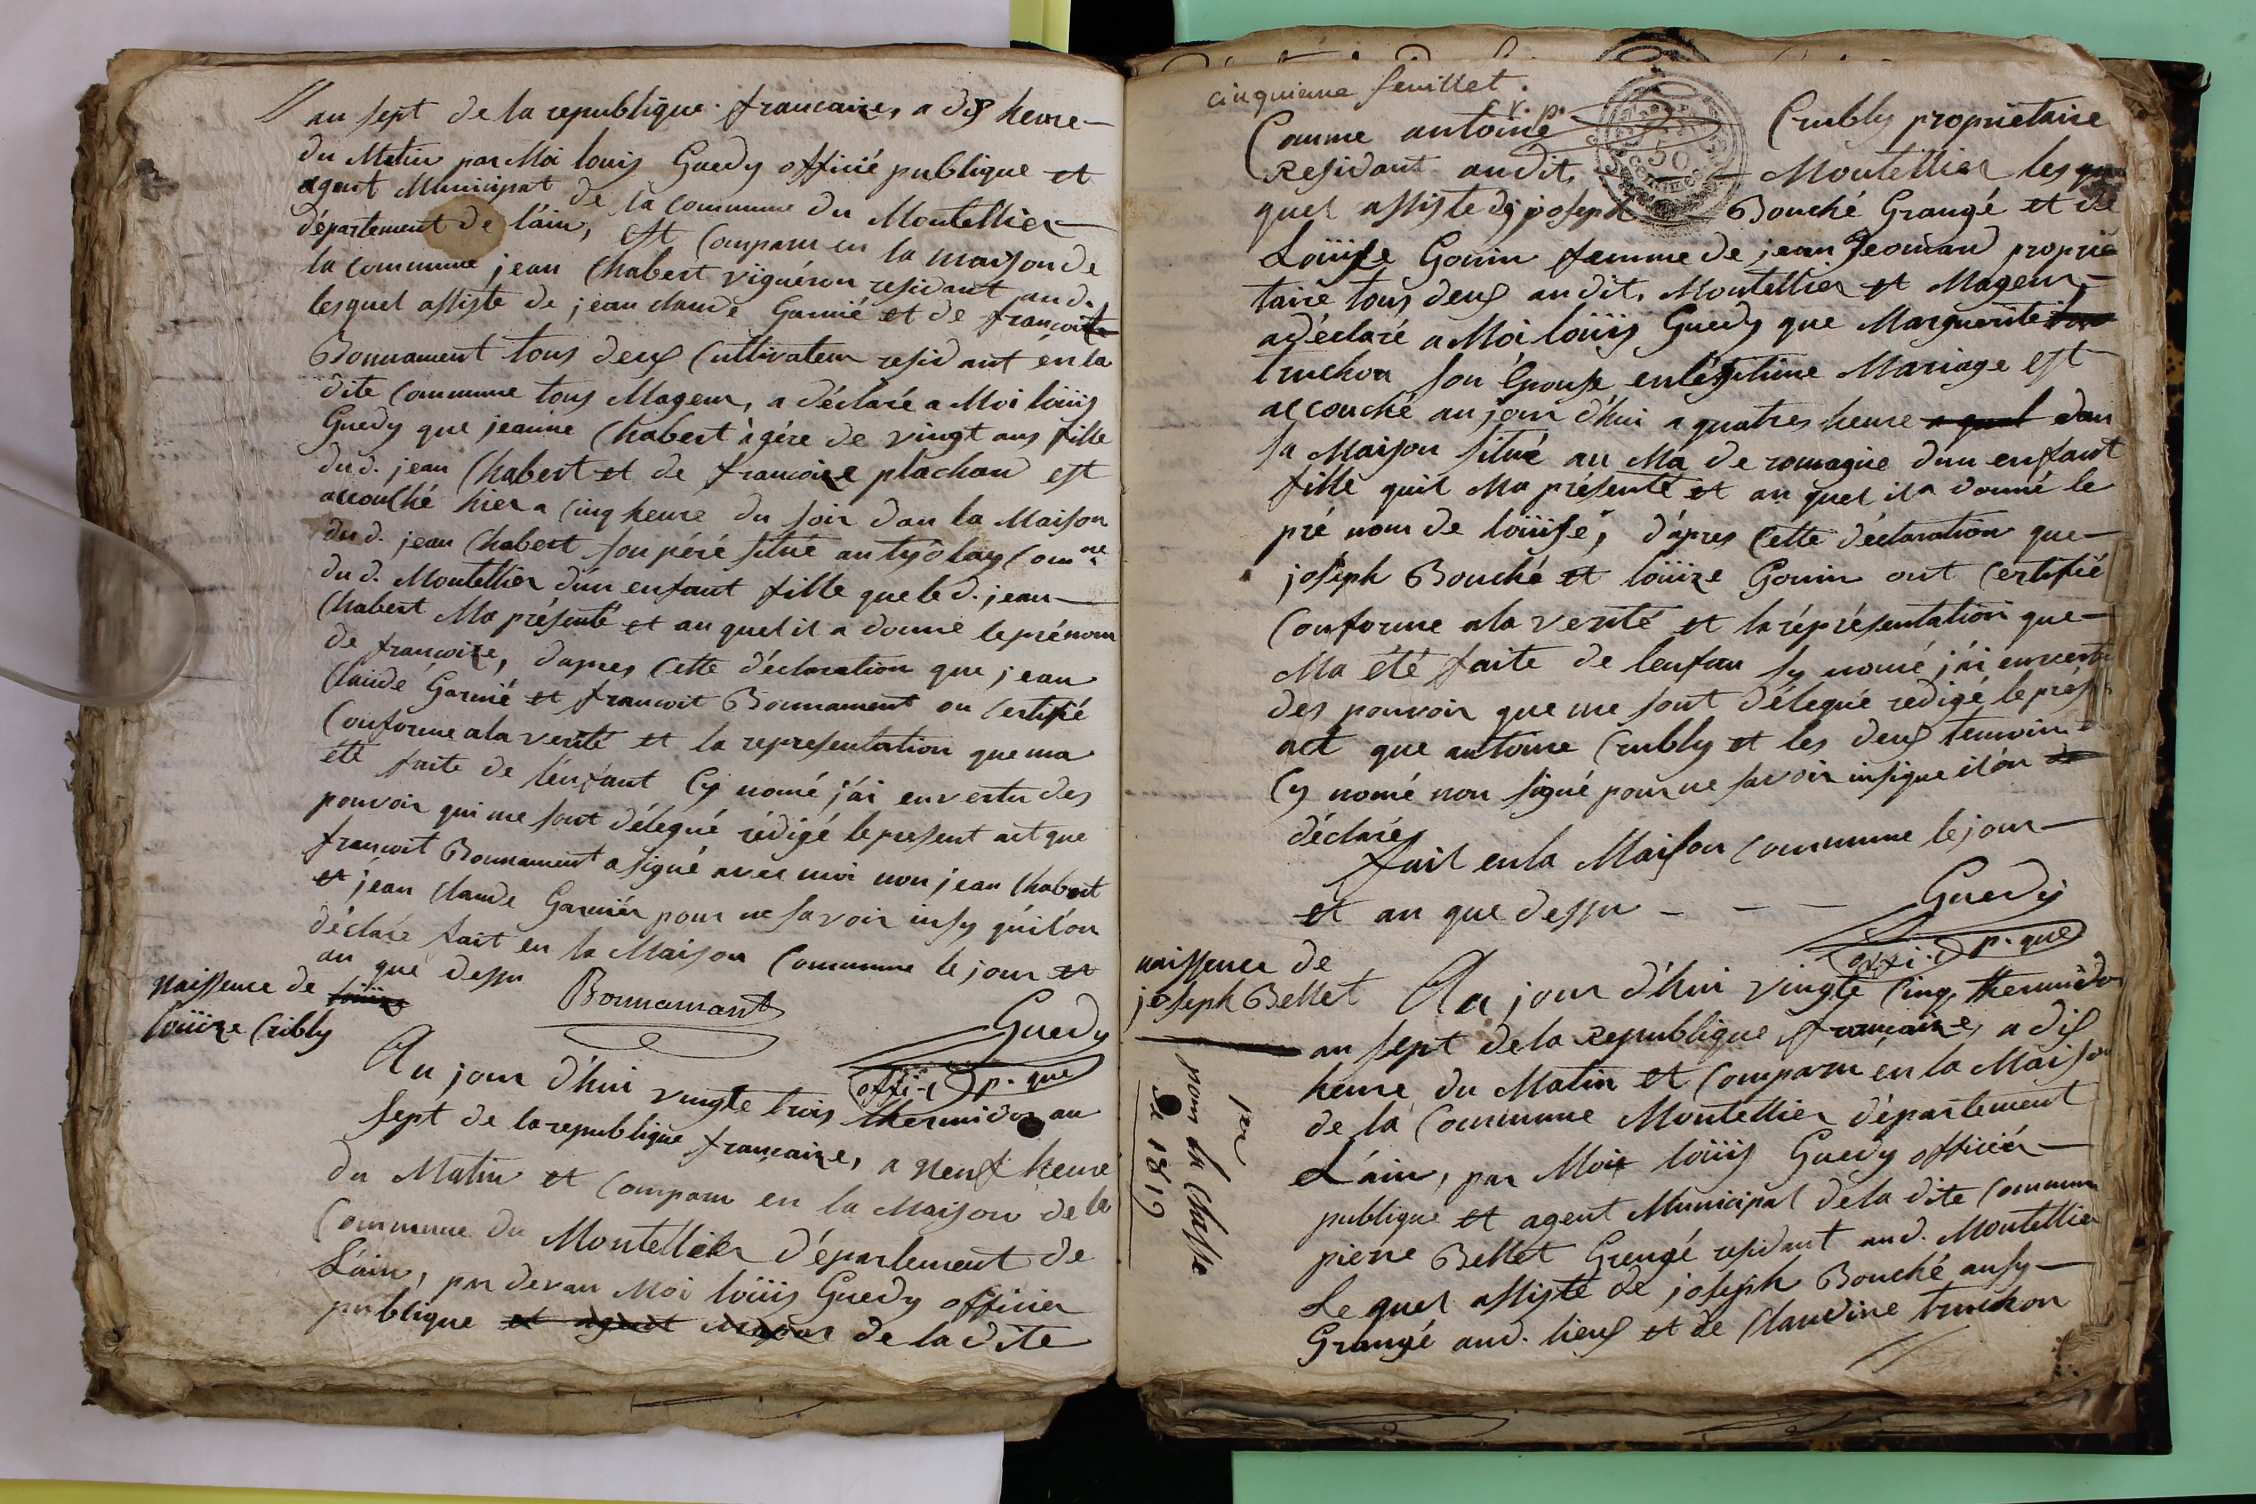 // an sept de la republique francaize, a dix heure
du Matin par Moi louis Guedy officié publique et
agent Municipat de la commune du Montellier
département de l'ain, est Comparu en la maison de
la commune jean Chabert vigneron residant aud.
lesquel assiste de jean claude Garnié et de francoit
Bonnament tous deux Cultivateur residant én la
dite Commune tous Mageur, a déclaré a Moi loüis
Guedy que jeanne Chabert agére de vingt ans fille
dud. jean Chabert et de francoize plachan est
accouché hier a Cinq heure du soir dan la Maison
dud. jean Chabert son péré situé au Comne
du d. Montellier d'un enfant fille que le d. jean
Chabert Ma présenté et au quel il a donné le prénom
de francoize, dapres Cette déclaration que jean
Claude Garnié et francoit Bonnament on Certifié
Conforme a la verité et la representation que ma
été faite de l'enfant Cy nomé j'ai en vertu des
pouvoir qui me sont délegué rédigé le present act que
francoit Bonnament a signé avec moi non jean Chabert
et jean Claude Garnier pour ne savoir insy qu'il on
déclaré fait en la Maison Commune le jour et
an que dessu
Bonnamant
Guedy
offi-é p. que
Naissence de loüize
loüize Cribly
Au jour d'hui vingte trois thermidor an
sept de la republique francaize, a neuf heure
du Matin et Comparu en la Maison de la
Commune du Montellier département de
L'ain, par devan Moi loüis Guedy officier
publique et agent de la dite
cinquieme feuillet.
Comme antoine Crubly proprietaire
Residant audit Montellier les
quel assiste de joseph Bouché Grangé et de
Loüise Gonin femme de jean proprie
taire tous deux au dit, Montellier et Mageur,
adéclaré a Moi loüis Guedy que Marguerite
truchon son Épouse en légitime Mariage est
accouché au jour d'hui a quatres heure dan
sa Maison situé au Ma de romagne d'un enfant
fille quil Ma présenté et au quel il a donné le
pré nom de loüise, d'apres Cette déclaration que
joseph Bouché et loüize Gonin ont Certifié
Conforme a la verité et la réprésentation que
Ma été faite de lenfan sy nomé j'ai en vertu
des pouvoir que me sont délegué redigé le prés
act que antoine Crubly et les deux temoin
Cy nomé non signé pour ne savoir insigne il on
déclarés
fait en la Maison Commune le jour
et an que dessu - - -
Guedy
offi-é p. que
naissence de
joseph Bellet
Au jour d'hui vingte Cinq thermidor
an sept de la Republique francaize, a dix
heure du Matin et Comparu en la Maiso
de la Commune Montellier département
L'ain, par Moi loüis Guedy officiér
publique et agent Municipal de la dite Commun
pierre Bellet Grengé residant aud. Montellier
Le quel assiste de joseph Bouché ausy
Grangé aud. lieux et de Claudine truchon
//
pr
pour la Classe
de 1819